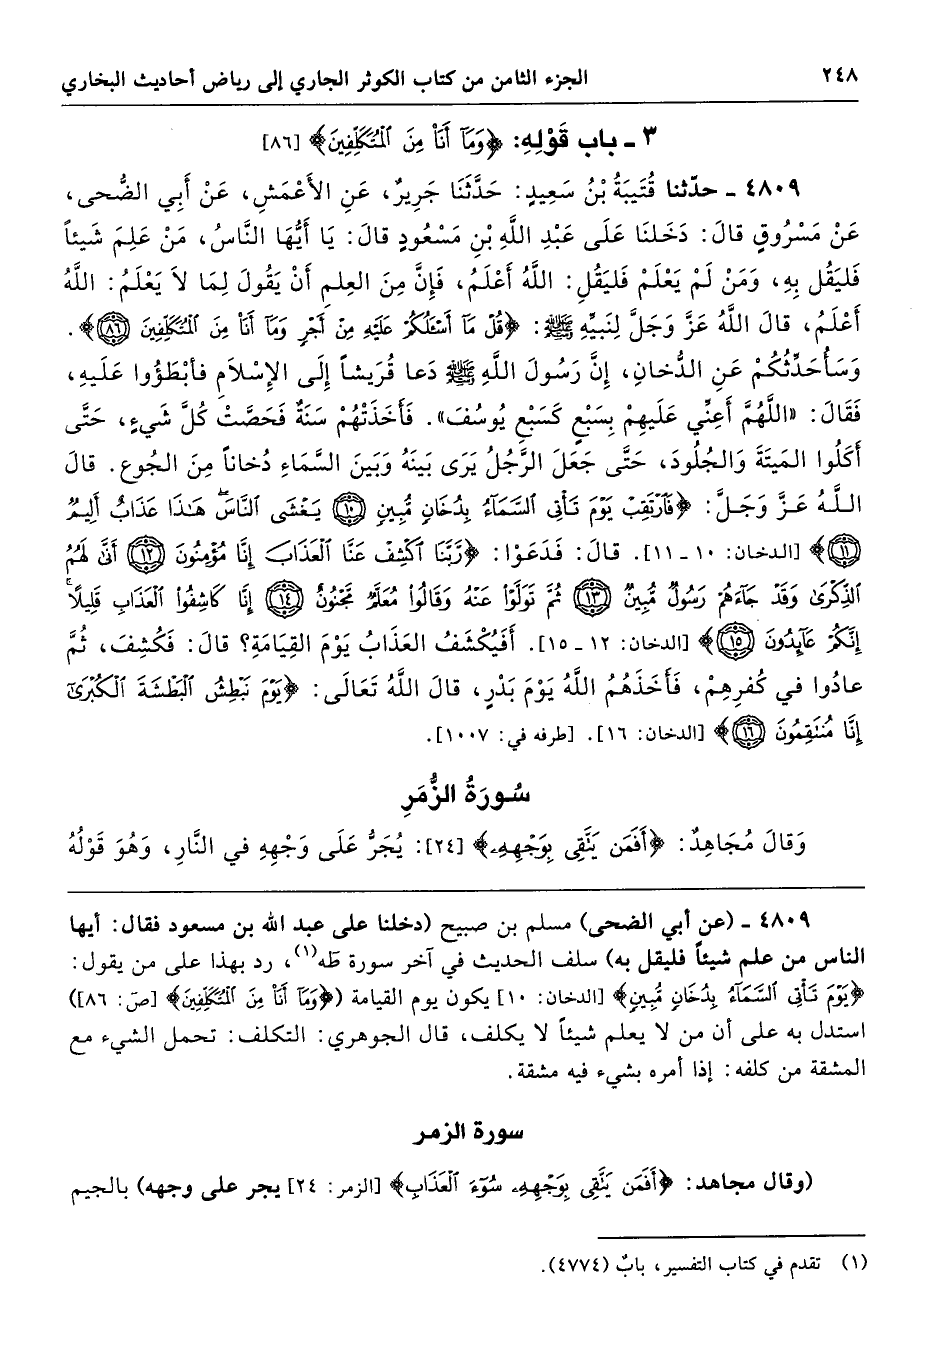 ٢٤٨ الجزء الثامن من كتاب الكوثر الجاري إلى رياض أحاديث البخاري
٣ ـ باب قَوْلِهِ: ﴿وَمَآ أَنَا۠ مِنَ ٱلْمُتَكَلِّفِينَ﴾ [٨٦]
٤٨٠٩ ـ حدّثنا قُتَيبَةُ بْنُ سَعِيدٍ: حَدَّثَنَا جَرِيرٌ، عَنِ الأَعْمَشِ، عَنْ أَبِي الضُّحى،
عَنْ مَسْرُوقٍ قالَ: دَخَلنَا عَلَى عَبْدِ اللَّهِ بْنِ مَسْعُودٍ قالَ: يَا أَيُّهَا النَّاسُ، مَنْ عَلِمَ شَيئاً
فَليَقُل بِهِ، وَمَنْ لَمْ يَعْلَمْ فَليَقُلِ: اللَّهُ أَعْلَمُ، فَإِنَّ مِنَ العِلمِ أَنْ يَقُولَ لِمَا لاَ يَعْلَمُ: اللَّهُ
أَعْلَمُ، قالَ اللَّهُ عَزَّ وَجَلَّ لِنَبِيِّهِ ﷺ: ﴿قُلْ مَآ أَسْـَٔلُكُمْ عَلَيْهِ مِنْ أَجْرٍ وَمَآ أَنَا۠ مِنَ ٱلْمُتَكَلِّفِينَ ٨٦﴾.
وَسَأُحَدِّثُكُمْ عَنِ الدُّخانِ، إِنَّ رَسُولَ اللَّهِ ﷺ دَعا قُرَيشاً إِلَى الإِسْلاَمِ فأَبْطَؤُوا عَلَيهِ،
فَقَالَ: «اللَّهُمَّ أَعِنِّي عَلَيهِمْ بِسَبْعٍ كَسَبْعِ يُوسُفَ». فَأَخَذَتْهُمْ سَنَةٌ فَحَصَّتْ كُلَّ شَيءٍ، حَتَّى
أَكَلُوا المَيتَةَ وَالجُلُودَ، حَتَّى جَعَلَ الرَّجُلُ يَرَى بَينَهُ وَبَينَ السَّمَاءِ دُخاناً مِنَ الجُوعِ. قالَ
اللَّهُ عَزَّ وَجَلَّ: ﴿فَٱرْتَقِبْ يَوْمَ تَأْتِى ٱلسَّمَآءُ بِدُخَانٍ مُّبِينٍ ١٠ يَغْشَى ٱلنَّاسَ ۖ هَـٰذَا عَذَابٌ أَلِيمٌ
١١﴾ [الدخان: ١٠ ـ ١١]. قالَ: فَدَعَوْا: ﴿رَّبَّنَا ٱكْشِفْ عَنَّا ٱلْعَذَابَ إِنَّا مُؤْمِنُونَ ١٢ أَنَّىٰ لَهُمُ
ٱلذِّكْرَىٰ وَقَدْ جَآءَهُمْ رَسُولٌ مُّبِينٌ ١٣ ثُمَّ تَوَلَّوْا۟ عَنْهُ وَقَالُوا۟ مُعَلَّمٌ مَّجْنُونٌ ١٤ إِنَّا كَاشِفُوا۟ ٱلْعَذَابِ قَلِيلًا ۚ
إِنَّكُمْ عَآئِدُونَ ١٥﴾ [الدخان: ١٢ ـ ١٥]. أَفَيُكْشَفُ العَذَابُ يَوْمَ القِيَامَةِ؟ قالَ: فَكُشِفَ، ثُمَّ
عادُوا في كُفرِهِمْ، فَأَخَذَهُمُ اللَّهُ يَوْمَ بَدْرٍ، قالَ اللَّهُ تَعَالَى: ﴿يَوْمَ نَبْطِشُ ٱلْبَطْشَةَ ٱلْكُبْرَىٰٓ
إِنَّا مُنتَقِمُونَ ١٦﴾ [الدخان: ١٦]. [طرفه في: ١٠٠٧].
سُورَةُ الزُّمَرِ
وَقالَ مُجَاهِدٌ: ﴿أَفَمَن يَتَّقِى بِوَجْهِهِۦ﴾ [٢٤]: يُجَرُّ عَلَى وَجْهِهِ في النَّارِ، وَهُوَ قَوْلُهُ
٤٨٠٩ ـ (عن أبي الضحى) مسلم بن صبيح (دخلنا على عبد الله بن مسعود فقال: أيها
الناس من علم شيئاً فليقل به) سلف الحديث في آخر سورة طه(١)، رد بهذا على من يقول:
﴿يَوْمَ تَأْتِى ٱلسَّمَآءُ بِدُخَانٍ مُّبِينٍ﴾ [الدخان: ١٠] يكون يوم القيامة (﴿وَمَآ أَنَا۠ مِنَ ٱلْمُتَكَلِّفِينَ﴾ [صَ: ٨٦])
استدل به على أن من لا يعلم شيئاً لا يكلف، قال الجوهري: التكلف: تحمل الشيء مع
المشقة من كلفه: إذا أمره بشيء فيه مشقة.
سورة الزمر
(وقال مجاهد: ﴿أَفَمَن يَتَّقِى بِوَجْهِهِۦ سُوٓءَ ٱلْعَذَابِ﴾ [الزمر: ٢٤] يجر على وجهه) بالجيم
(١) تقدم في كتاب التفسير، بابٌ (٤٧٧٤).